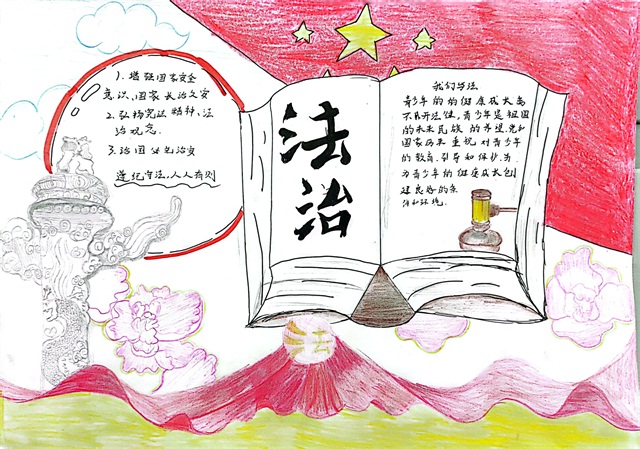 1. 增强国家安全
意识,国家长治久安
2. 弘扬宪法精神、法
治观念.
3. 治国 必先治安
遵纪守法,人人有则
法治
我们与法
青少年的的健康成长离
不开法律,青少年是祖国
的未来民族的希望,党和
国家历来重视对青少年
的教育、引导和保护,为
为青少年的健康成长创
建良好的条
件和环境.